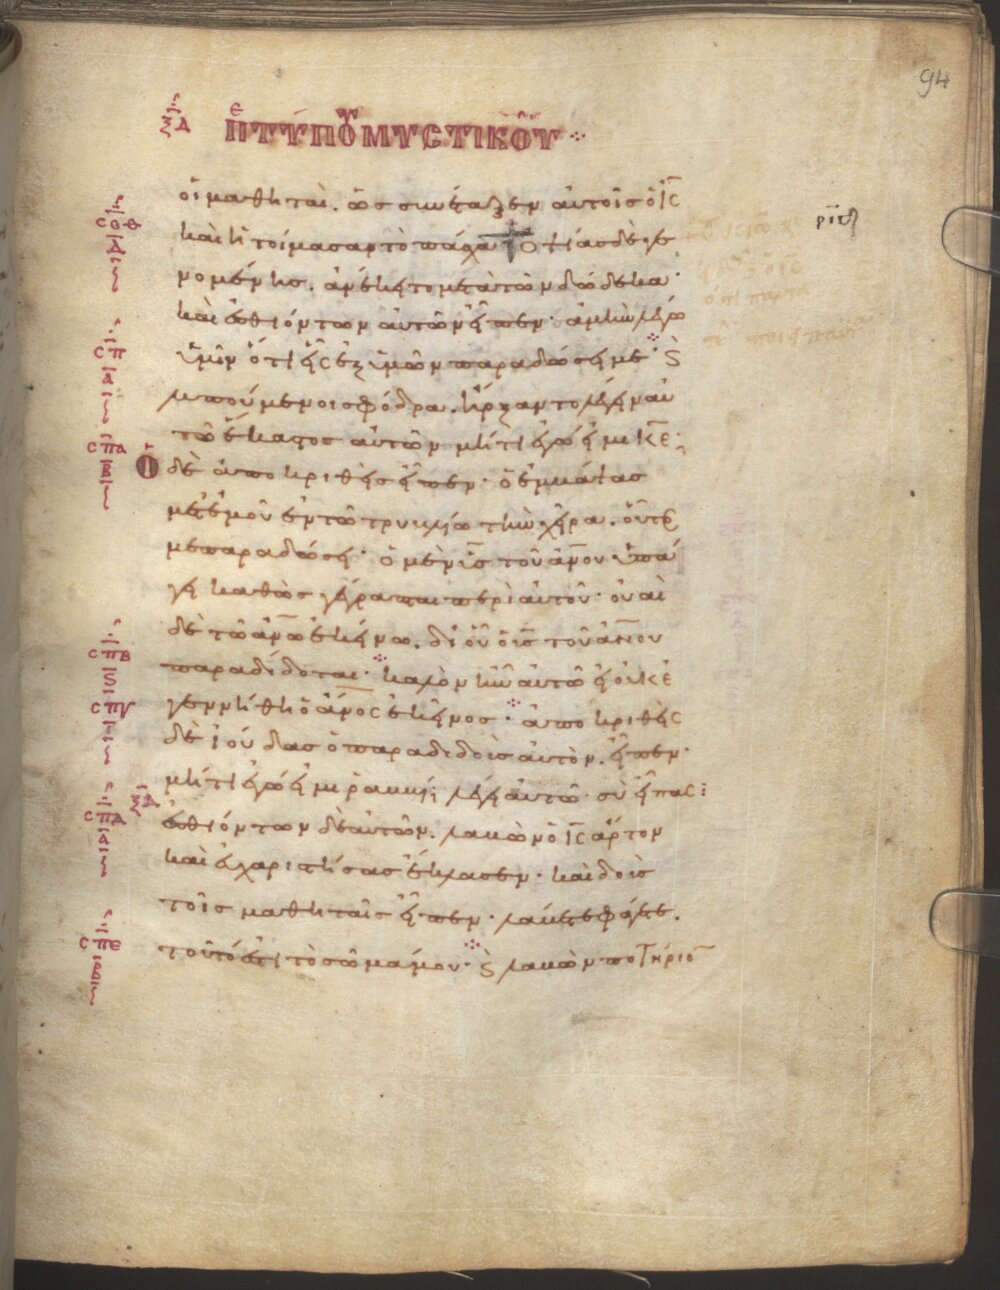 94
ξδ Περὶ τοῦ τύπου μυστικοῦ
οἱ μαθηταὶ. ὡς συνέταξεν αὐτοῖς ὁ ις
καὶ ἡτοίμασαν τὸ πάσχα ὀψίας δὲ γε
νομένης. ἀνέκειτο μετὰ τῶν δώδεκα·
καὶ ἐσθιόντων αὐτῶν εἶπεν· ἀμὴν λέγω
ὑμῖν ὅτι εἷς ἐξ ὑμῶν παραδώσει με· ϗ
λυπούμενοι σφόδρα. ἤρξαντο λέγειν αὐ
τῶ ἕκαστος αὐτῶν μήτι ἐγώ εἰμι κε;
ὁ δὲ ἀποκριθεὶς εἶπεν· ὁ ἐμβάψας
μετ' ἐμοῦ ἐν τῶ τρυβλίω τὴν χεῖρα. οὗτος
με παραδώσει· ὁ μὲν υς τοῦ ανου ὑπά
γει καθὼς γέγραπται περὶ αὐτοῦ· οὐαὶ
δὲ τῶ ανω ἐκείνω. δι' οὗ ὁ υς τοῦ ανου
παραδίδοται· καλὸν ἦν αὐτῶ εἰ οὐκ ἐ
γεννήθη ὁ ανος ἐκεῖνος· ἀποκριθεὶς
δὲ ἰούδας ὁ παραδιδοὺς αὐτὸν. εἶπεν·
μήτι ἐγώ εἰμι ῥαββί; λέγει αὐτῶ· σὺ εἶπας:
ἐσθιόντων δὲ αὐτῶν. λαβὼν ὁ ις ἄρτον
καὶ εὐχαριστήσας ἔκλασεν· καὶ δοὺς
τοῖς μαθηταῖς εἶπεν· λάβετε φάγετε.
τοῦτό ἐστι τὸ σῶμά μου· ϗ λαβὼν ποτήριον
σοθ
δ
σπ
α
σπα
β
σπβ
ϛ
σπγ
ξδ
σπδ
α
σπε
β